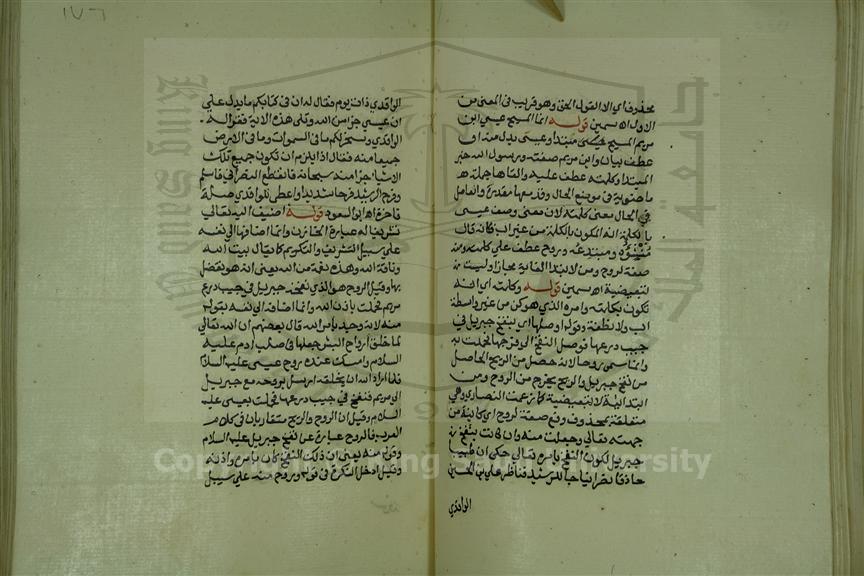 محذوف اي الا القول الحق وهو قريب في المعنى من
الاول اه سمين قوله انما المسيح عيسى ابن
مريم المسيح مبتدا وعيسى بدل منه او
عطف بيان وابن مريم صفته ورسول الله خبر
المبتدا وكلمته عطف عليه والقاها جملة
ماضوية في موضع الحال وقد معها مقدرة والعامل
في الحال معنى كلمته لان معنى وصف عيسى
بالكلمة انه المكون بالكلمة من غير اب فكانه قال
ومبتدعه وروح عطف على كلمته ومنه
صفة لروح ومن لابتدا الغاية مجازا وليست
لتبعيضية اه سمين قوله وكلمته اي انه
تكون بكلمته وامره الذي هو كن من غير واسطة
اب ولا نطفة وقوله اوصلها اي بنفخ جبريل في
جيب درعها فوصل النفخ الى فرجها فحملت به
وانما سمي روحا لانه حصل من الريح الحاصل
من نفخ جبريل والريح يخرج من الروح ومن
ابتدائية لا تبعيضية كما زعمت النصارى وهي
متعلقة بمحذوف وقع صفة لروح اي كائنة من
جهته تعالى وجعلت منه وان كانت بنفخ
جبريل لكون النفخ بامره تعالى حكي ان طبيبا
حاذقا نصرانيا جا للرشيد فناظر علي بن الحسين
الواقدي
١٧٦
الواقدي ذات يوم فقال له ان في كتابكم ما يدل على
ان عيسى جزء من الله وتلى هذه الاية فقرا له
الواقدي وسخر لكم ما في السموات وما في الارض
جميعا منه فقال اذا يلزم ان تكون جميع تلك
الاشياء جزا منه سبحانه فانقطع النصراني فاسلم
وفرح الرشيد فرحا شديدا واعطى للواقدي صلة
فاخرة اه ابو السعود قوله اضيف اليه تعالى
تشريفا له عبارة الخازن وانما اضافها الى نفسه
على سبيل التشريف والتكريم كما يقال بيت الله
وناقة الله وهذه نعمة من الله يعني انه هو تفضل
بها وقيل الروح هو الذي نفخه جبريل في جيب درع
مريم فحملت باذن الله وانما اضافه الى نفسه بقوله
منه لانه وجد بامر الله قال بعضهم ان الله تعالى
لما خلق ارواح البشر جعلها في صلب ادم عليه
السلام وامسك عنده روح عيسى عليه السلام
فلما اراد الله ان يخلقه ارسل بروحه مع جبريل
الى مريم فنفخ في جيب درعها فحملت بعيسى عليه
السلام وقيل ان الروح والريح متقاربان في كلام
العرب فالروح عبارة عن نفخ جبريل عليه السلام
وقوله منه يعني ان ذلك النفخ كان بامره واذنه
وقيل ادخل النكرة في قوله وروح منه على سبيل
Copyright © King Saud University